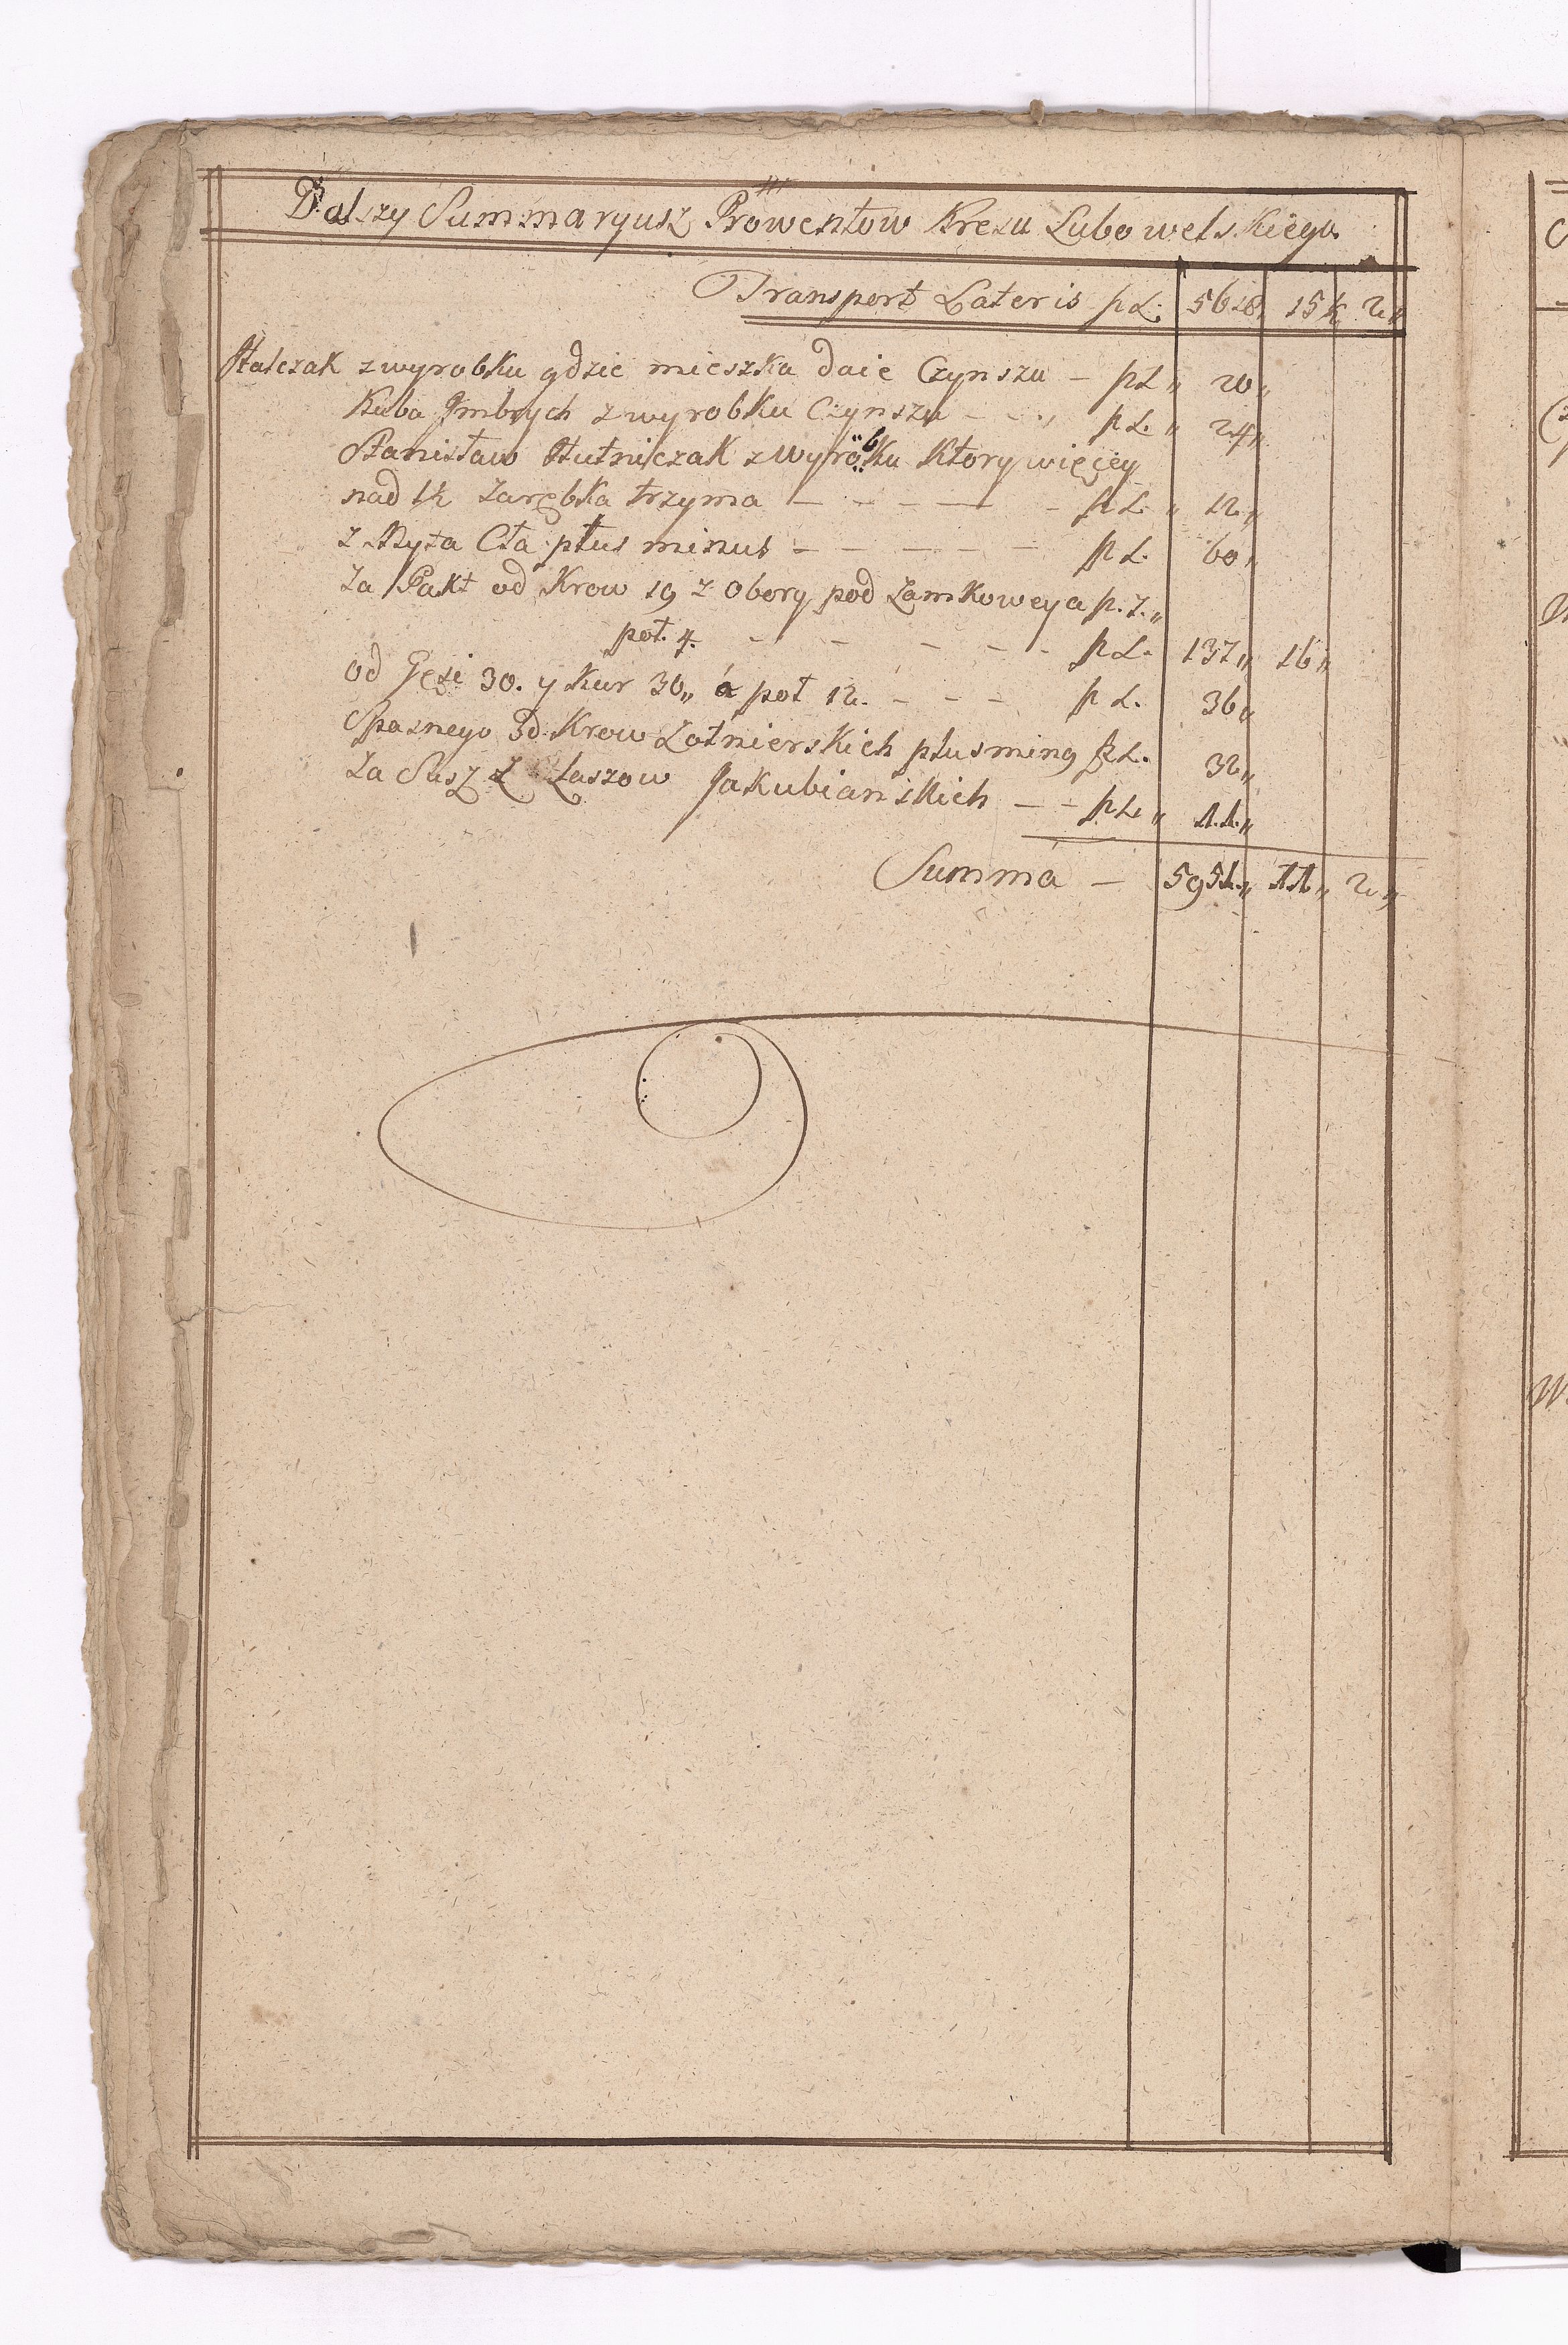 Dalszy Summaryusz Prowentow Kresu Lubowelskiego
Transport Lateris pL. 5618„ 15„ 2„
Halczak z wyrobku gdzie mieszka daie Czynszu – pL„ 20„
Kuba Jmbrych z wyrobku Czynszu – – „ pL. „ 24„
Stanisław Hutniczak z wyrobku Ktory więcey
nad ½ Zarębka trzyma – – – – – pL „ 12„
z Ryża Cła plus minus – – – – – pL. 60„
Za Pakt od Krow 19 z Obory pod Zamkowey a p. 7.„
poł. 4. – – – – – pL. 137„ 16„
od Gęsi 30. y Kur 30„ á poł 12. – – – pL. 36„
Spasnego od Krow Żołnierskich plus ming pL. 32„
Za Susz Z Laszow Jakubianskich – – pL„ 11„
Summa – 5951„ 11„ 2„